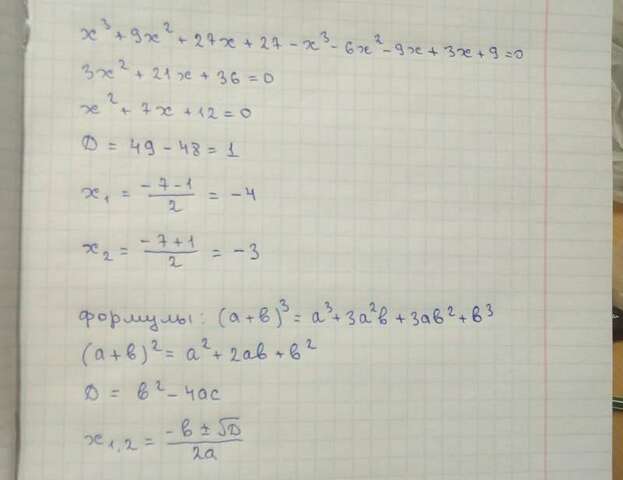 x³ + 9x² + 27x + 27 - x³ - 6x² - 9x + 3x + 9 = 0
3x² + 21x + 36 = 0
x² + 7x + 12 = 0
D = 49 - 48 = 1
x₁ = (-7-1)/2 = -4
x₂ = (-7+1)/2 = -3
формулы: (a+b)³ = a³ + 3a²b + 3ab² + b³
(a+b)² = a² + 2ab + b²
D = b² - 4ac
x₁,₂ = (-b ± √D)/2a